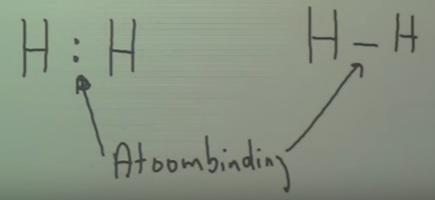 H : H
H – H
Atoombinding